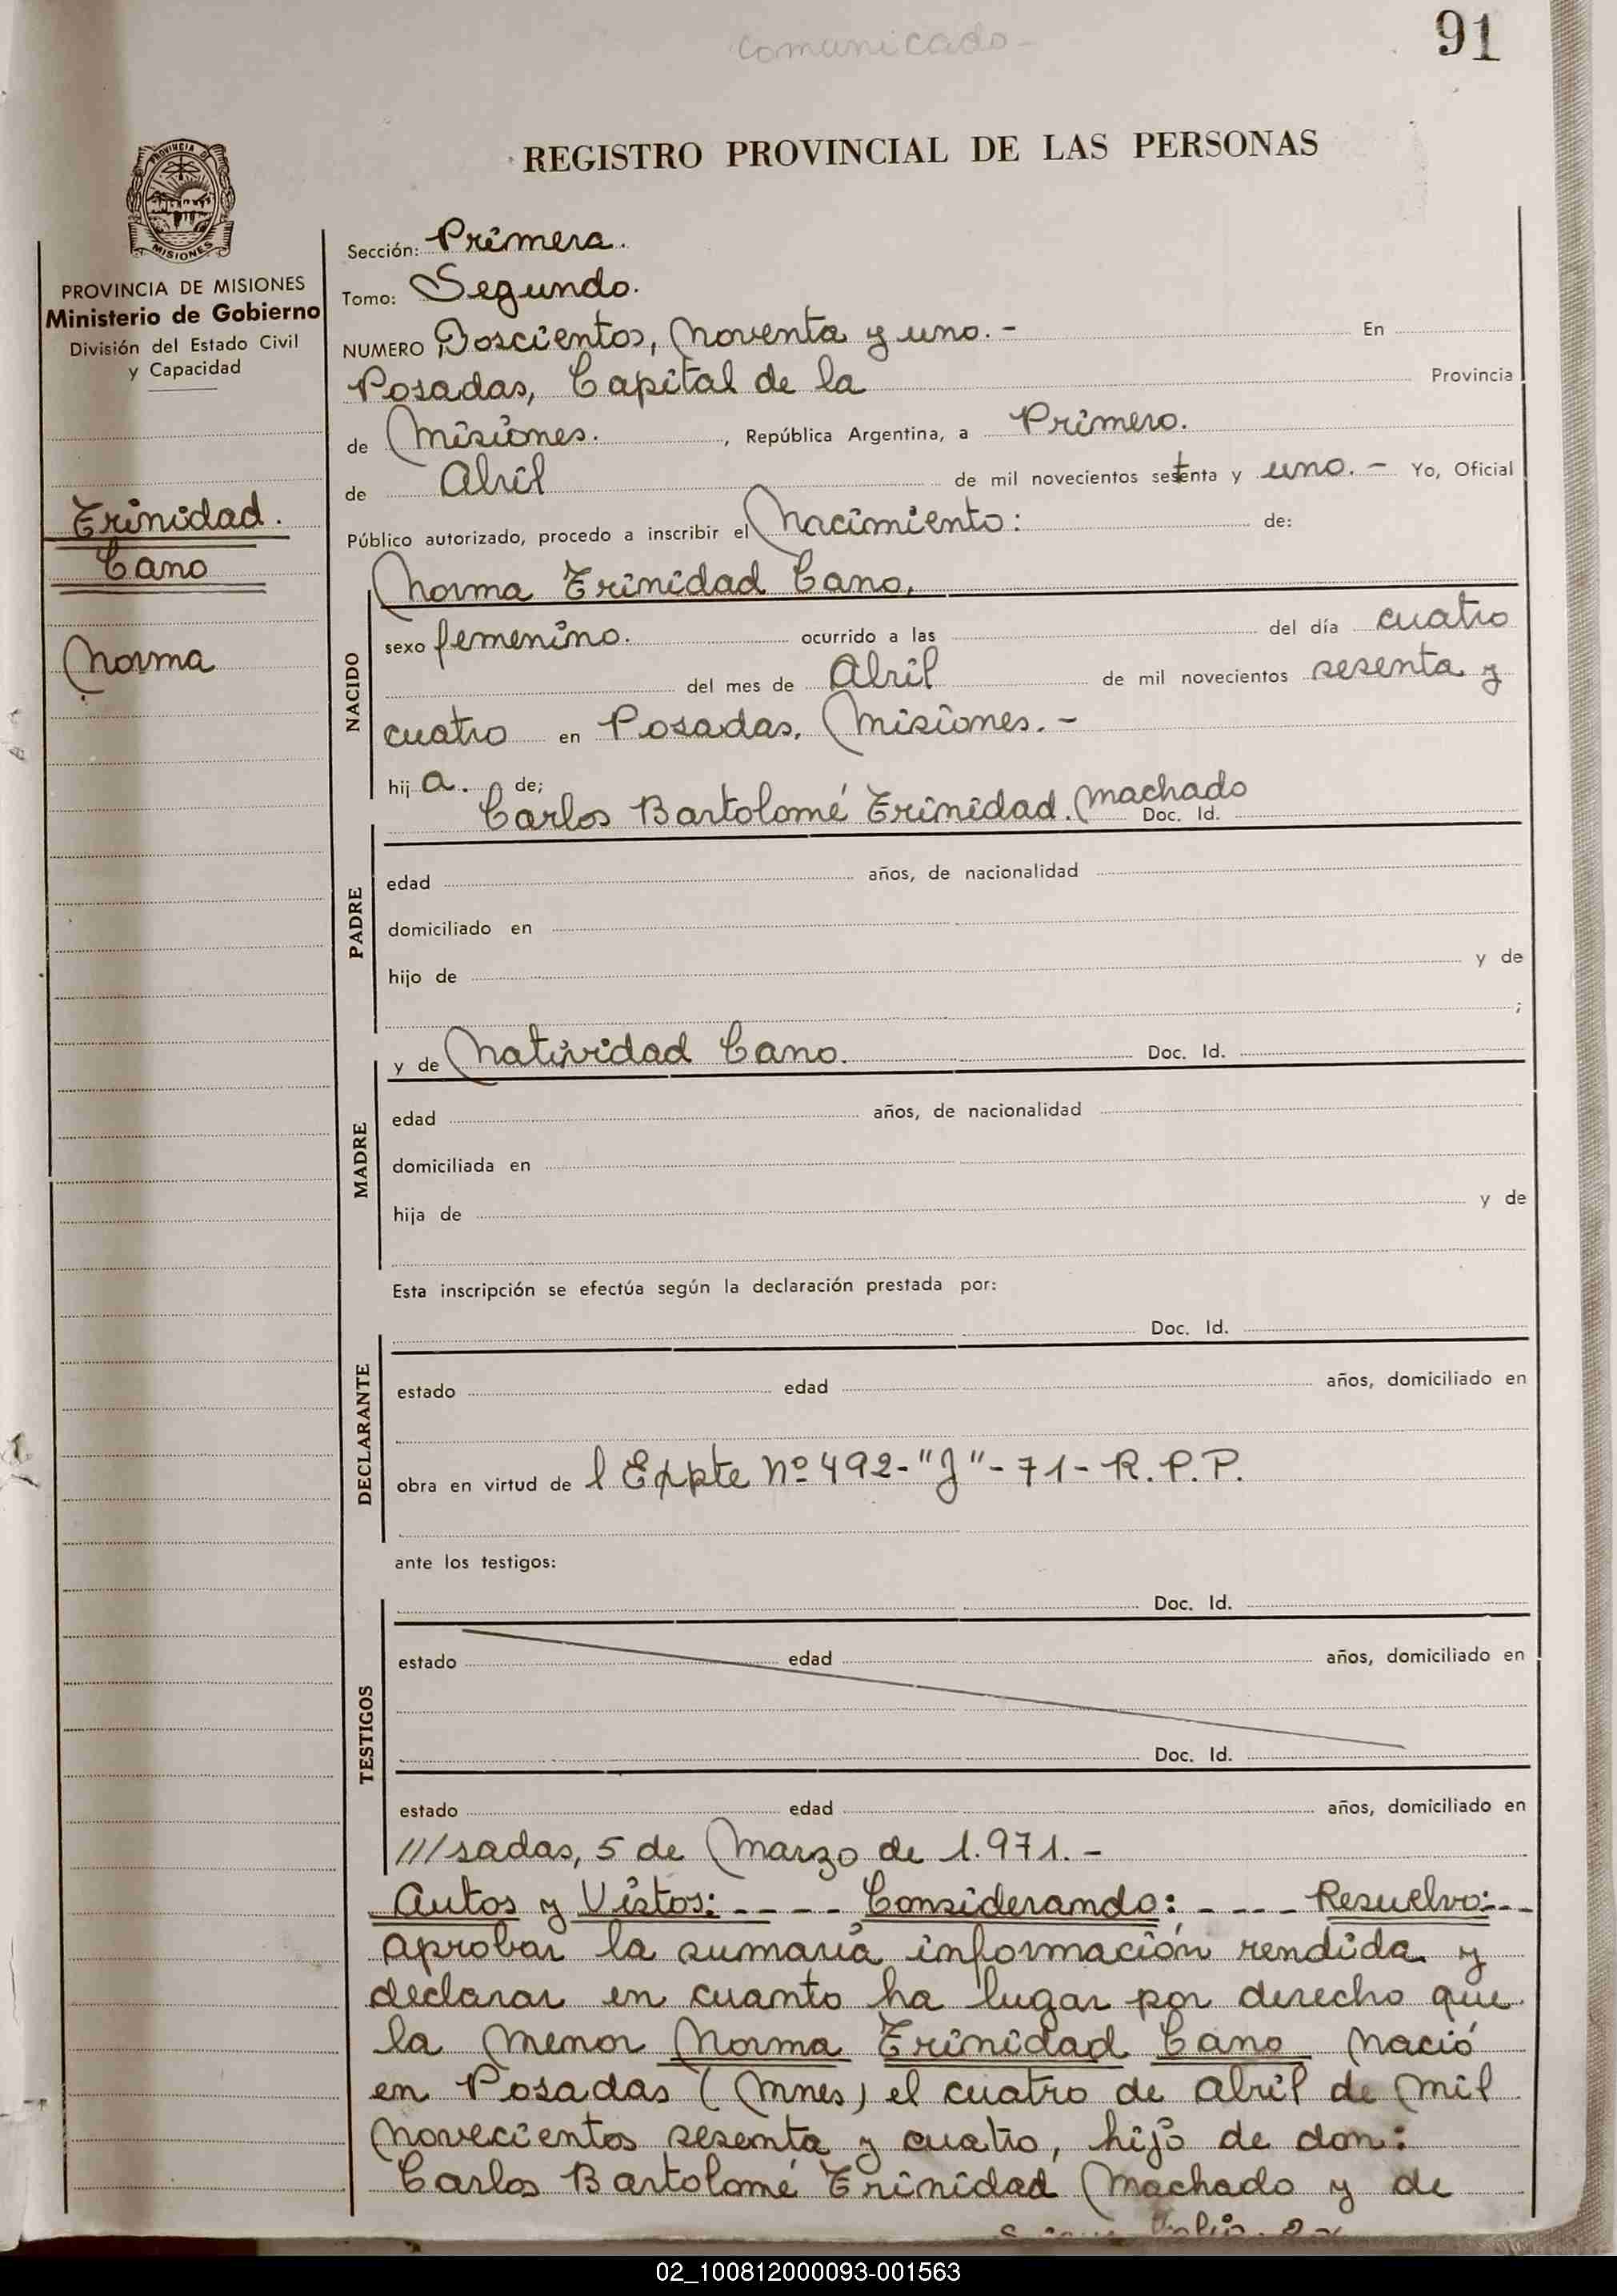 comunicado-
91
REGISTRO PROVINCIAL DE LAS PERSONAS
PROVINCIA DE
MISIONES
PROVINCIA DE MISIONES
Ministerio de Gobierno
División del Estado Civil
y Capacidad
Trinidad.
Cano
Norma
Sección: Primera.
Tomo: Segundo.
NUMERO Doscientos, Noventa y uno. - En
Posadas, Capital de la Provincia
de Misiones. , República Argentina, a Primero.
de Abril de mil novecientos setenta y uno. - Yo, Oficial
Público autorizado, procedo a inscribir el Nacimiento: de:
Norma Trinidad Cano.
NACIDO
sexo femenino. ocurrido a las del día cuatro
del mes de Abril de mil novecientos sesenta y
cuatro en Posadas, Misiones. -
hij a. de;
Carlos Bartolomé Trinidad. Machado Doc. Id.
PADRE
edad años, de nacionalidad
domiciliado en
hijo de y de
;
y de Natividad Cano. Doc. Id.
MADRE
edad años, de nacionalidad
domiciliada en
hija de y de
Esta inscripción se efectúa según la declaración prestada por:
Doc. Id.
DECLARANTE
estado edad años, domiciliado en
obra en virtud de l Expte Nº 492-"J"-71-R.P.P.
ante los testigos:
Doc. Id.
TESTIGOS
estado edad años, domiciliado en
Doc. Id.
estado edad años, domiciliado en
///sadas, 5 de Marzo de 1.971. -
Autos y Vistos: - - - - Considerando: - - - - Resuelvo: - -
aprobar la sumaria información rendida y
declarar en cuanto ha lugar por derecho que
la menor Norma Trinidad Cano nació
en Posadas (Mnes) el cuatro de Abril de Mil
Novecientos sesenta y cuatro, hijo de don:
Carlos Bartolomé Trinidad Machado y de
02_100812000093-001563